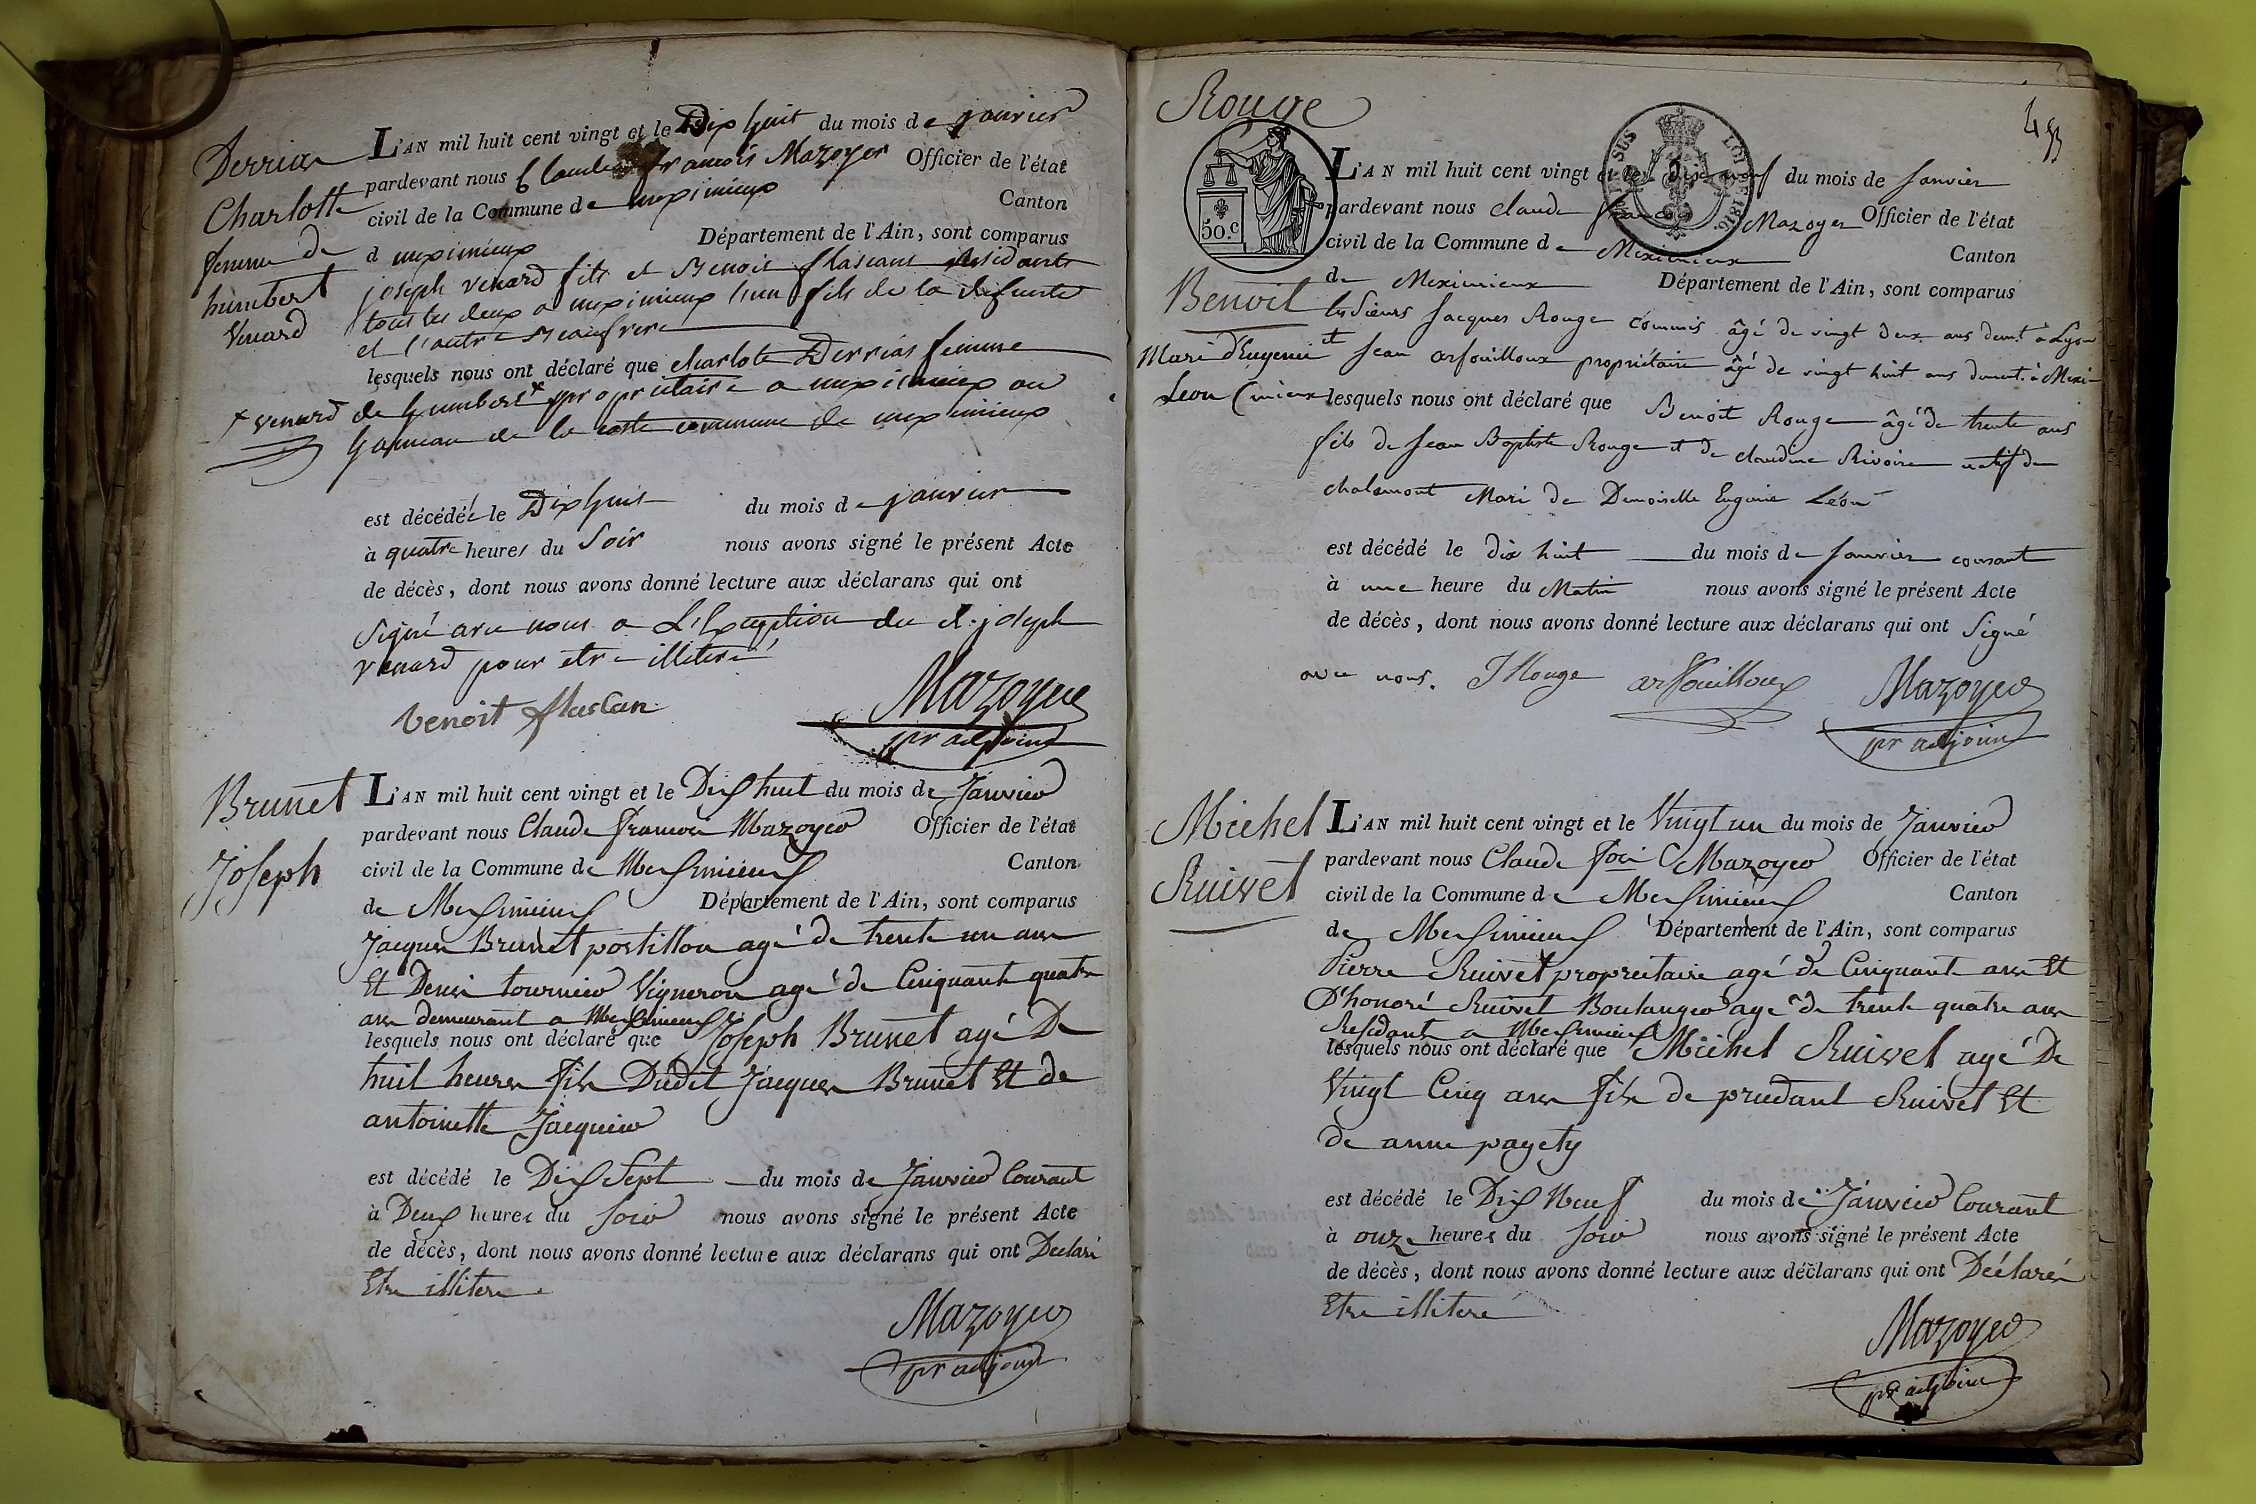 Derrias
Charlotte
femme de
humbert
Venard
L'AN mil huit cent vingt et le Dix huit du mois de janvier
pardevant nous Claude françois Mazoyer Officier de l'état
civil de la Commune de meximieux Canton
d meximieux Département de l'Ain, sont comparus
joseph venard fils et Benoit flascans residants
tous les deux a meximieux l'un fils de la defunte
et l'autre Beaufrere
lesquels nous ont déclaré que charlote Derrias femme
+ venard de humbert + propriétaire a meximieux au
hameau de la coste commune de meximieux
est décédée le Dix huit du mois de janvier
à quatre heures du Soir nous avons signé le présent Acte
de décès, dont nous avons donné lecture aux déclarans qui ont
Signé avec nous a L'Exception du d. joseph
venard pour etre illiteré
benoit flascan
Mazoyer
pr adjoint
Brunet
Joseph
L'AN mil huit cent vingt et le Dix huit du mois de Janvier
pardevant nous Claude françois Mazoyer Officier de l'état
civil de la Commune de Meximieux Canton
de Meximieux Département de l'Ain, sont comparus
Jacques Brunet postillon agé de trente un ans
Et Denis tournier Vigneron agé de Cinquante quatre
ans demeurant a Meximieux
lesquels nous ont déclaré que Joseph Brunet agé De
huit heures fils Dudit Jacques Brunet Et de
antoinette Jacquier
est décédé le Dix Sept du mois de Janvier Courant
à Deux heures du Soir nous avons signé le présent Acte
de décès, dont nous avons donné lecture aux déclarans qui ont Declaré
Etre illitere
Mazoyer
pr adjoint
453
Rouge
Benoit
Mari d'Eugenie
Leon
50.c
LOI DE 1816
L'AN mil huit cent vingt et le dix neuf du mois de Janvier
pardevant nous claude françois Mazoyer Officier de l'état
civil de la Commune de Meximieux Canton
de Meximieux Département de l'Ain, sont comparus
les Sieurs Jacques Rouge commis âgé de vingt deux ans demt. à Lyon
et Jean arfouilloux propriétaire âgé de vingt huit ans demeut. à Mexi-
(mieux lesquels nous ont déclaré que Benoit Rouge âgé de trente ans
fils de Jean Baptiste Rouge et de claudine Rivoire natif de
chalamont Mari de Demoiselle Eugenie Léon
est décédé le dix huit du mois de Janvier courant
à une heure du Matin nous avons signé le présent Acte
de décès, dont nous avons donné lecture aux déclarans qui ont Signé
avec nous. J Rouge arfouilloux Mazoyer
pr adjoint
Michel
Ruivet
L'AN mil huit cent vingt et le Vingt un du mois de Janvier
pardevant nous Claude fois Mazoyer Officier de l'état
civil de la Commune de Meximieux Canton
de Meximieux Département de l'Ain, sont comparus
Pierre Ruivet propriétaire agé de Cinquante ans Et
D'honoré Ruivet Boulanger agé de trente quatre ans
Residant a Meximieux
lesquels nous ont déclaré que Michel Ruivet agé De
Vingt Cinq ans fils de prudant Ruivet Et
de anne pagety
est décédé le Dix Neuf du mois de Janvier Courant
à onze heures du Soir nous avons signé le présent Acte
de décès, dont nous avons donné lecture aux déclarans qui ont Déclarés
Etre illiteré
Mazoyer
pr adjoint